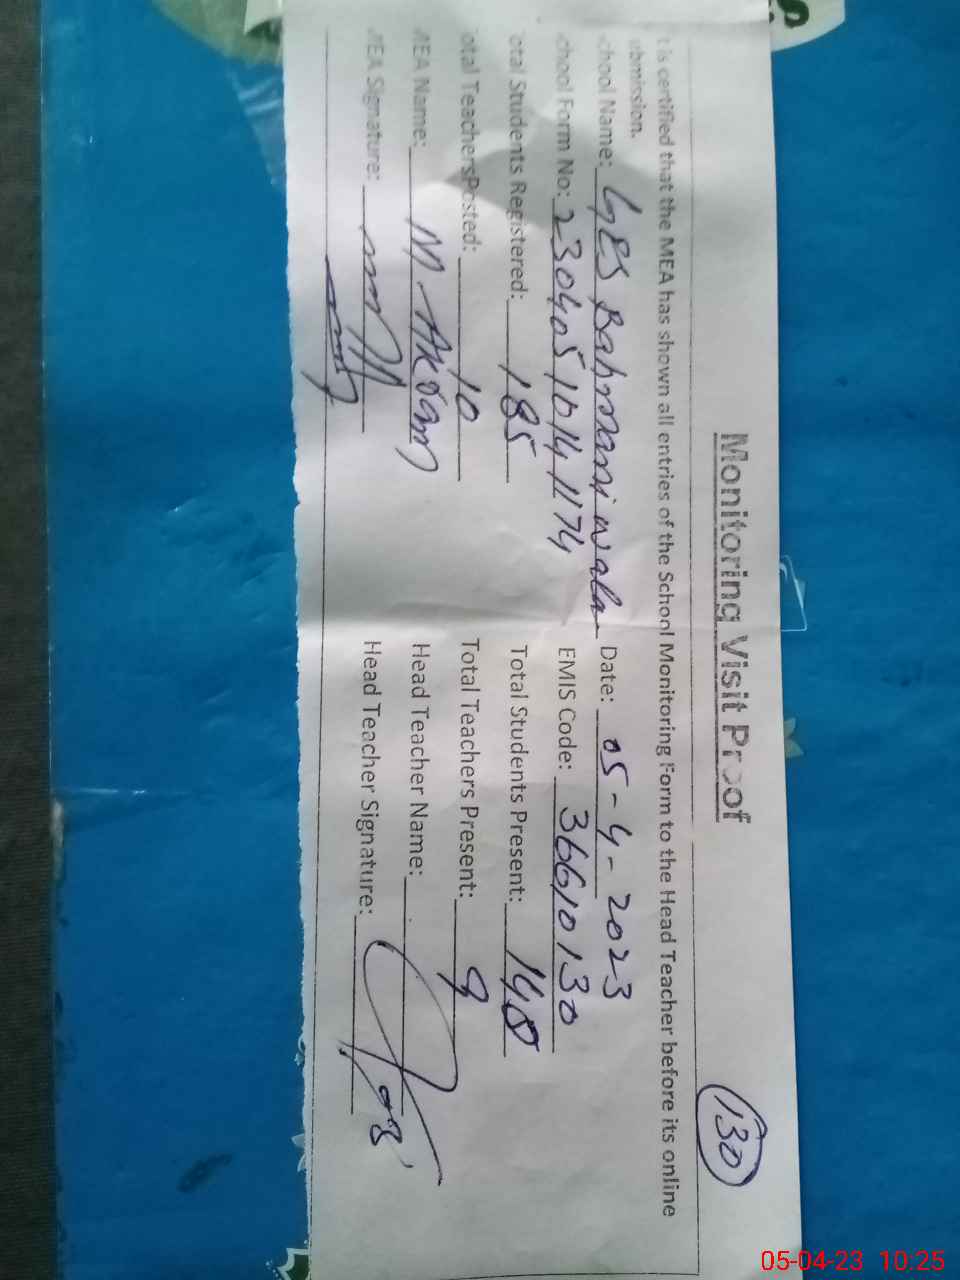 130
Monitoring Visit Proof
t is certified that the MEA has shown all entries of the School Monitoring Form to the Head Teacher before its online
ubmission.
chool Name: GES Bahmani wala Date: 05-4-2023
chool Form No: 230405101411174 EMIS Code: 36610130
otal Students Registered: 185 Total Students Present: 140
otal TeachersPosted: 10 Total Teachers Present: 9
MEA Name: M. Akram Head Teacher Name:
MEA Signature: Head Teacher Signature:
05-04-23 10:25